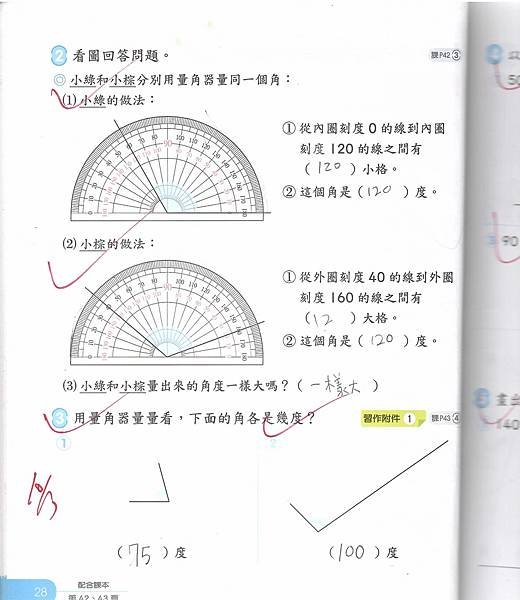 2 看圖回答問題。 課P42③
◎小綠和小棕分別用量角器量同一個角：
(1)小綠的做法：
①從內圈刻度0的線到內圈
刻度120的線之間有
（120）小格。
②這個角是（120）度。
(2)小棕的做法：
①從外圈刻度40的線到外圈
刻度160的線之間有
（12）大格。
②這個角是（120）度。
(3)小綠和小棕量出來的角度一樣大嗎？（一樣大）
3 用量角器量量看，下面的角各是幾度？ 習作附件 1 課P43④
1
2
（75）度
（100）度
10/3
28
配合課本
第42、43頁
4 以
50
90
5 畫出
140